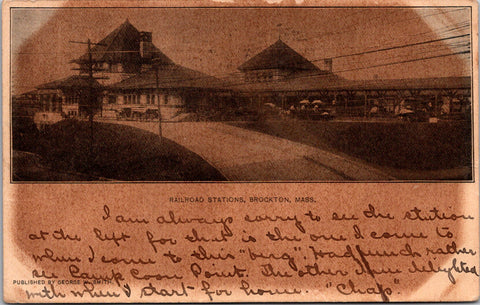 RAILROAD STATIONS, BROCKTON, MASS.
I am always sorry to see the station
at the left for that is the one I come to
when I come to this "burg". Had much rather
see Camp Coon Point. The other I am delighted
PUBLISHED BY GEORGE H. SMITH.
with when I start for home. "Chap"